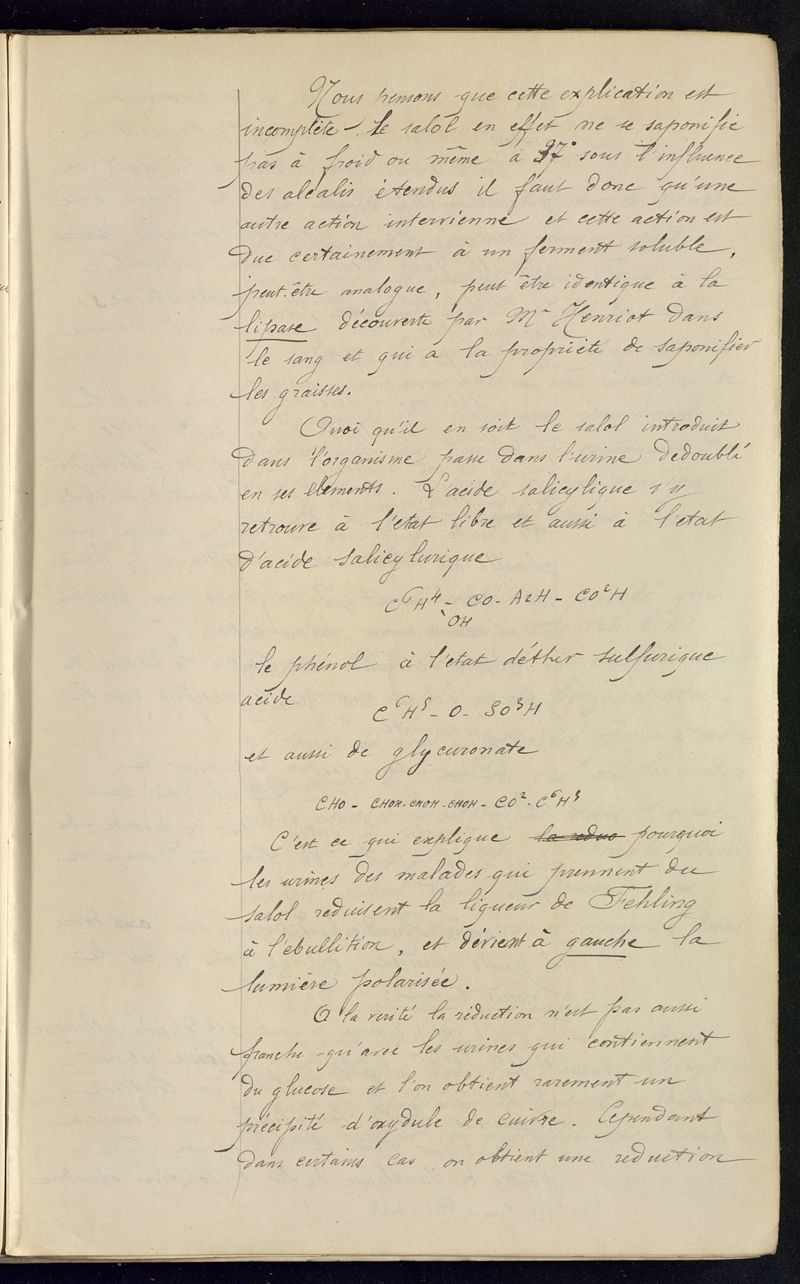 Nous pensons que cette explication est
incomplète. Le salol en effet ne se saponifie
pas à froid ou même à 37° sous l'influence
des alcalis étendus il faut donc qu'une
autre action intervienne et cette action est
due certainement à un ferment soluble,
peut-être analogue, peut être identique à la
lipase découverte par Mr Henriot dans
le sang et qui a la propriété de saponifier
les graisses.
Quoi qu'il en soit le salol introduit
dans l'organisme passe dans l'urine dedoublé
en ses elements. L'acide salicylique s'y
retrouve à l'état libre et aussi à l'état
d'acide salicylurique
C⁶H⁴ - CO - AzH - CO²H
OH
le phénol à l'état d'éther sulfurique
acide
C⁶H⁵ - O - SO³H
et aussi de glycuronate
CHO - CHOH - CHOH - CHOH - CO² - C⁶H⁵
C'est ce qui explique la reduc pourquoi
les urines des malades qui prennent du
salol reduisent la liqueur de Fehling
à l'ebullition, et dévient à gauche la
lumière polarisée.
A la verité la réduction n'est pas aussi
franche qu'avec les urines qui contiennent
du glucose et l'on obtient rarement un
précipité d'oxydule de cuivre. Cependant
dans certains cas on obtient une reduction